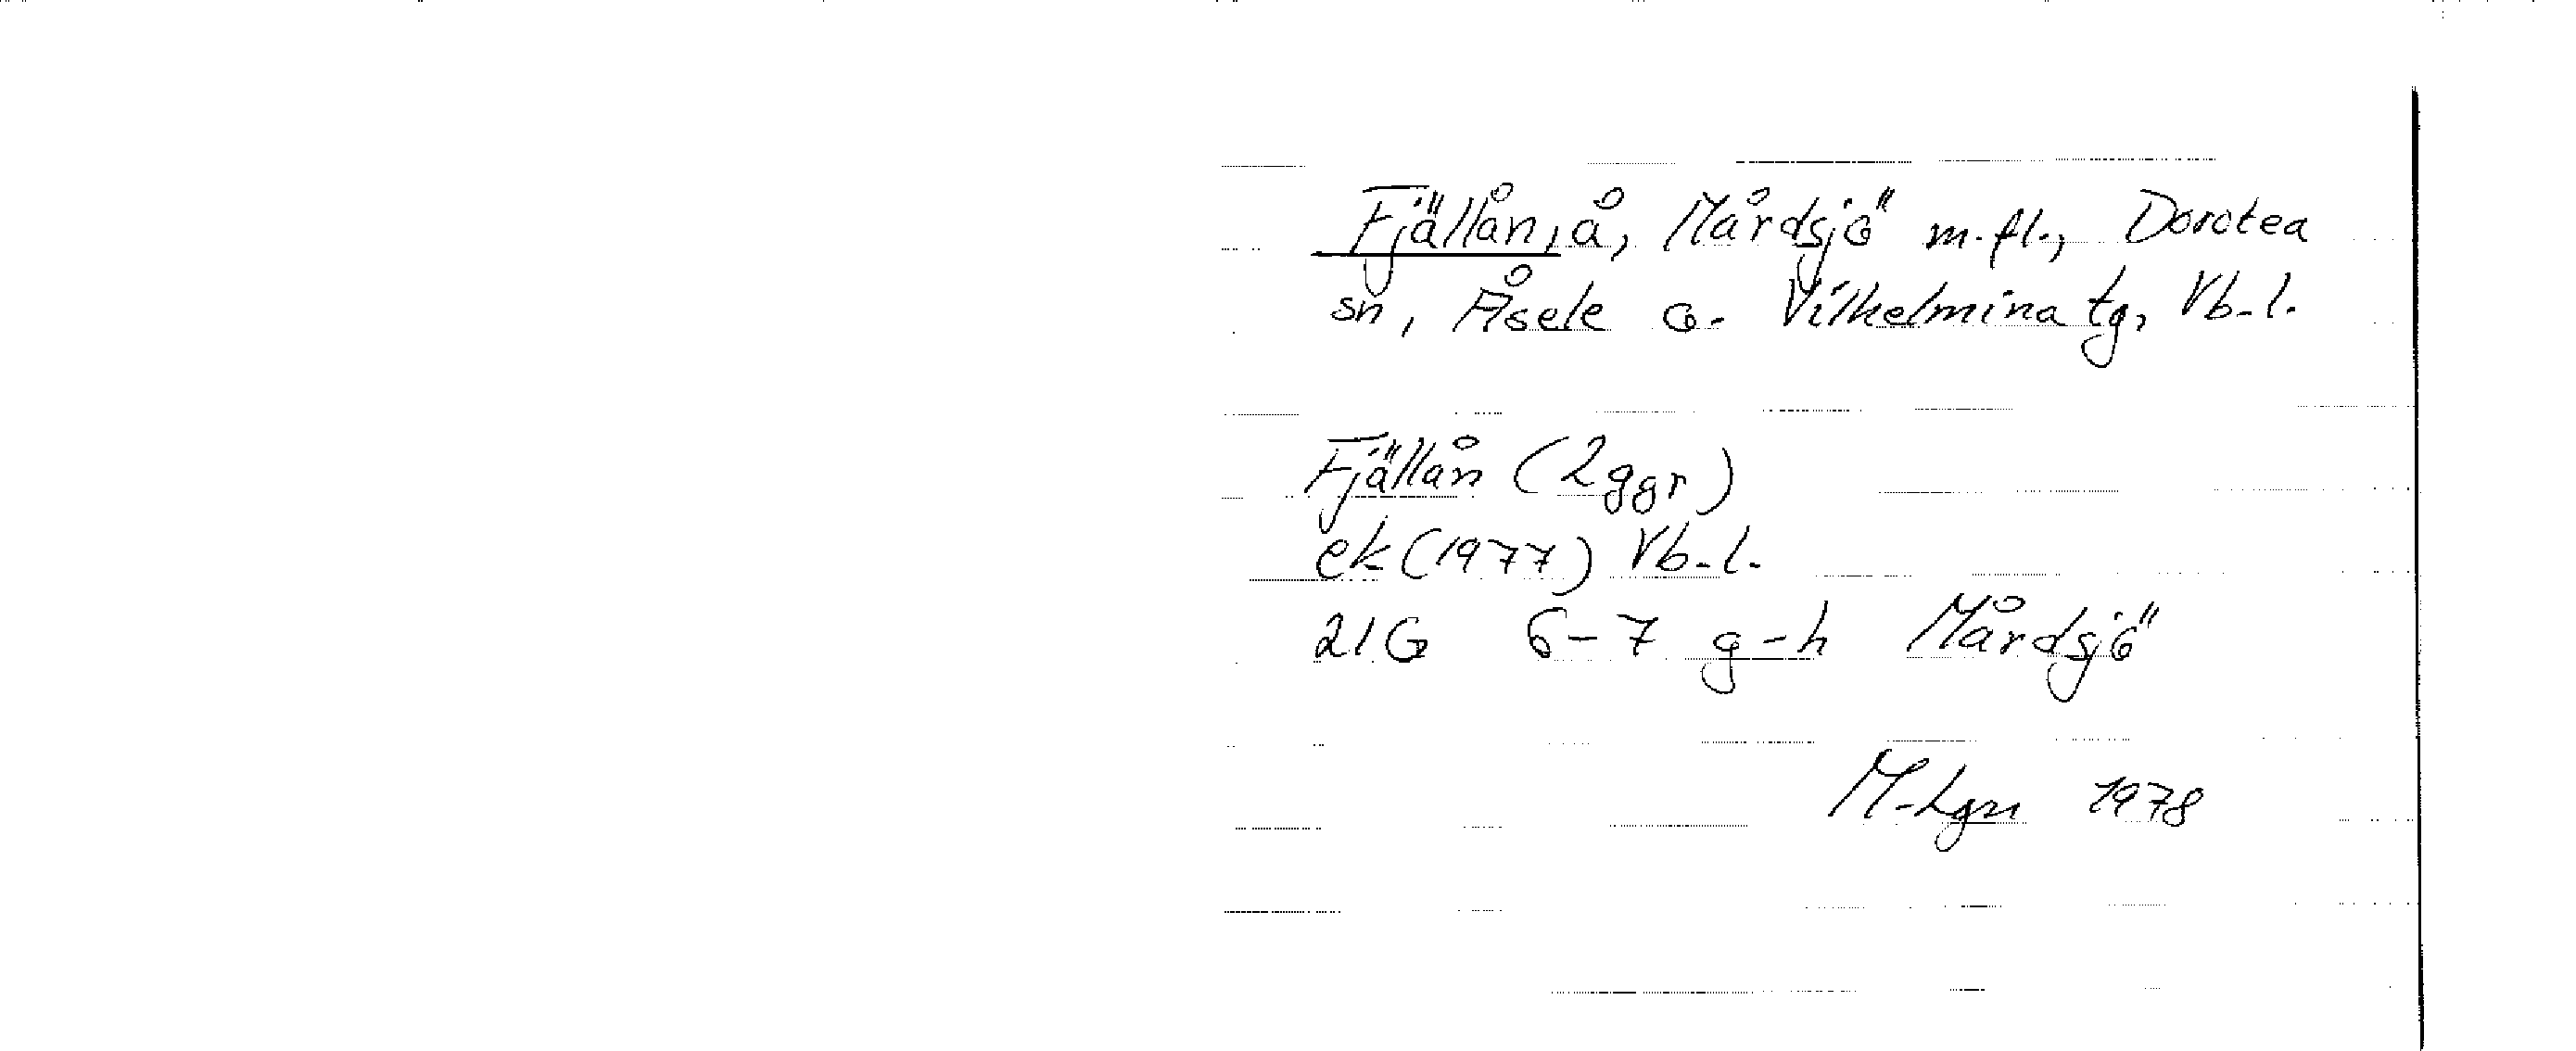 Fjällån, å, Mårdsjö m.fl., Dorotea
sn, Åsele o. Vilhelmina tg, Vb.l.
Fjällån (2ggr)
ek (1977) Vb.l.
21G 6-7 g-h Mårdsjö
M-Lgn 1978